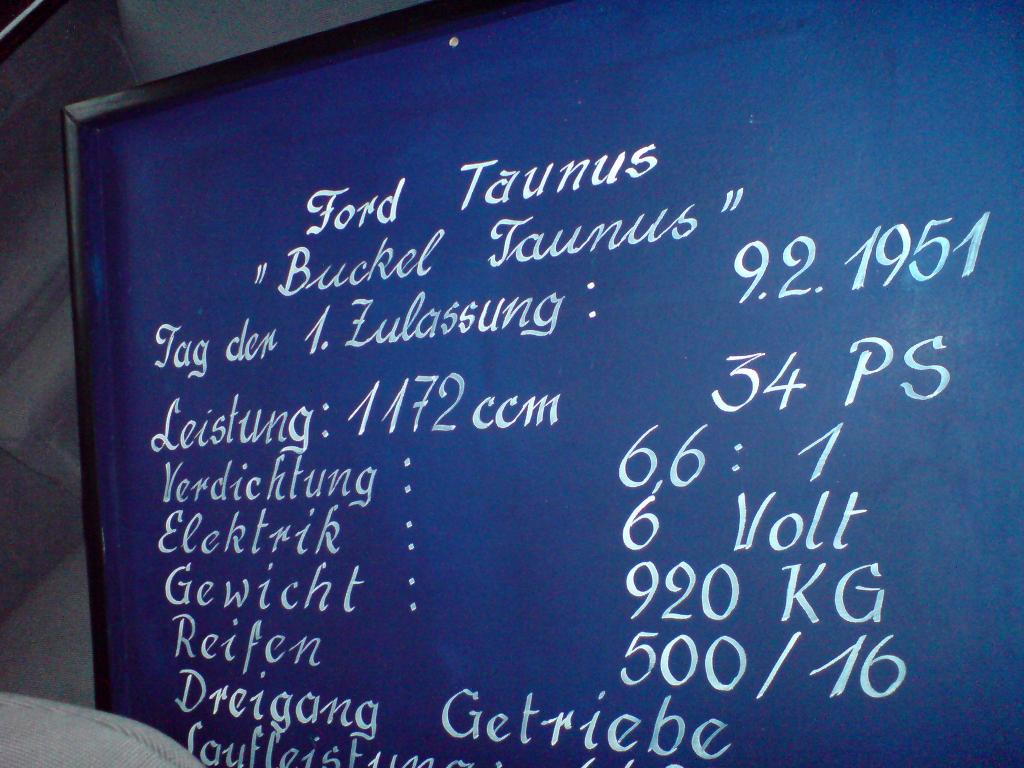 Ford Taunus
"Buckel Taunus"
Tag der 1. Zulassung : 9.2.1951
Leistung: 1172 ccm 34 PS
Verdichtung : 6,6 : 1
Elektrik : 6 Volt
Gewicht : 920 KG
Reifen 500/16
Dreigang Getriebe
Laufleistung :